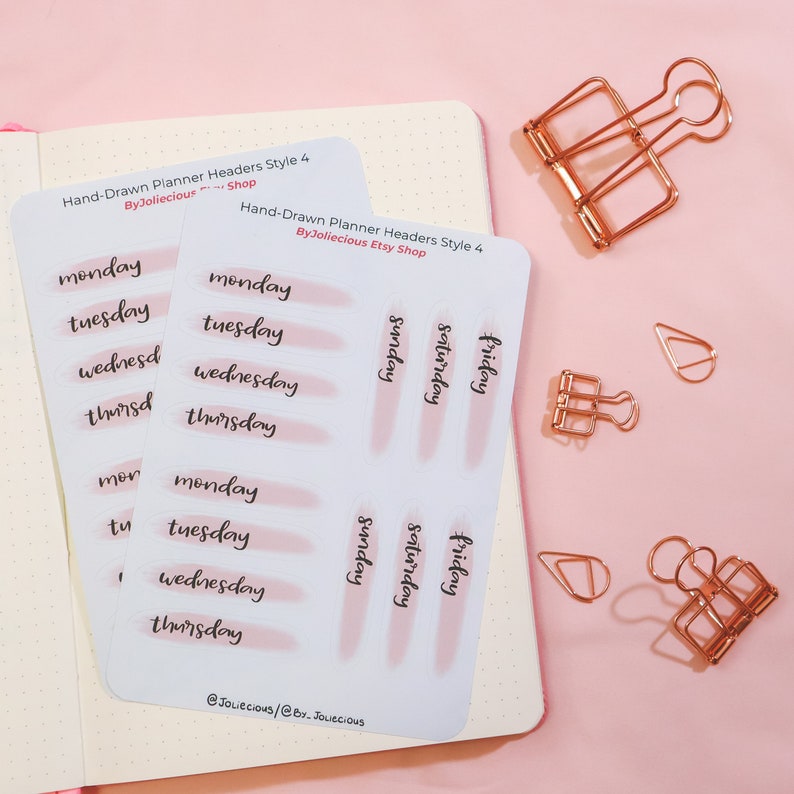 Hand-Drawn Planner Headers Style 4
ByJoliecious Etsy Shop
monday
tuesday
wednesday
thursday
mon
tu
Hand-Drawn Planner Headers Style 4
ByJoliecious Etsy Shop
monday
tuesday
wednesday
thursday
sunday
saturday
friday
monday
tuesday
wednesday
thursday
sunday
saturday
friday
@Joliecious/@By_Joliecious